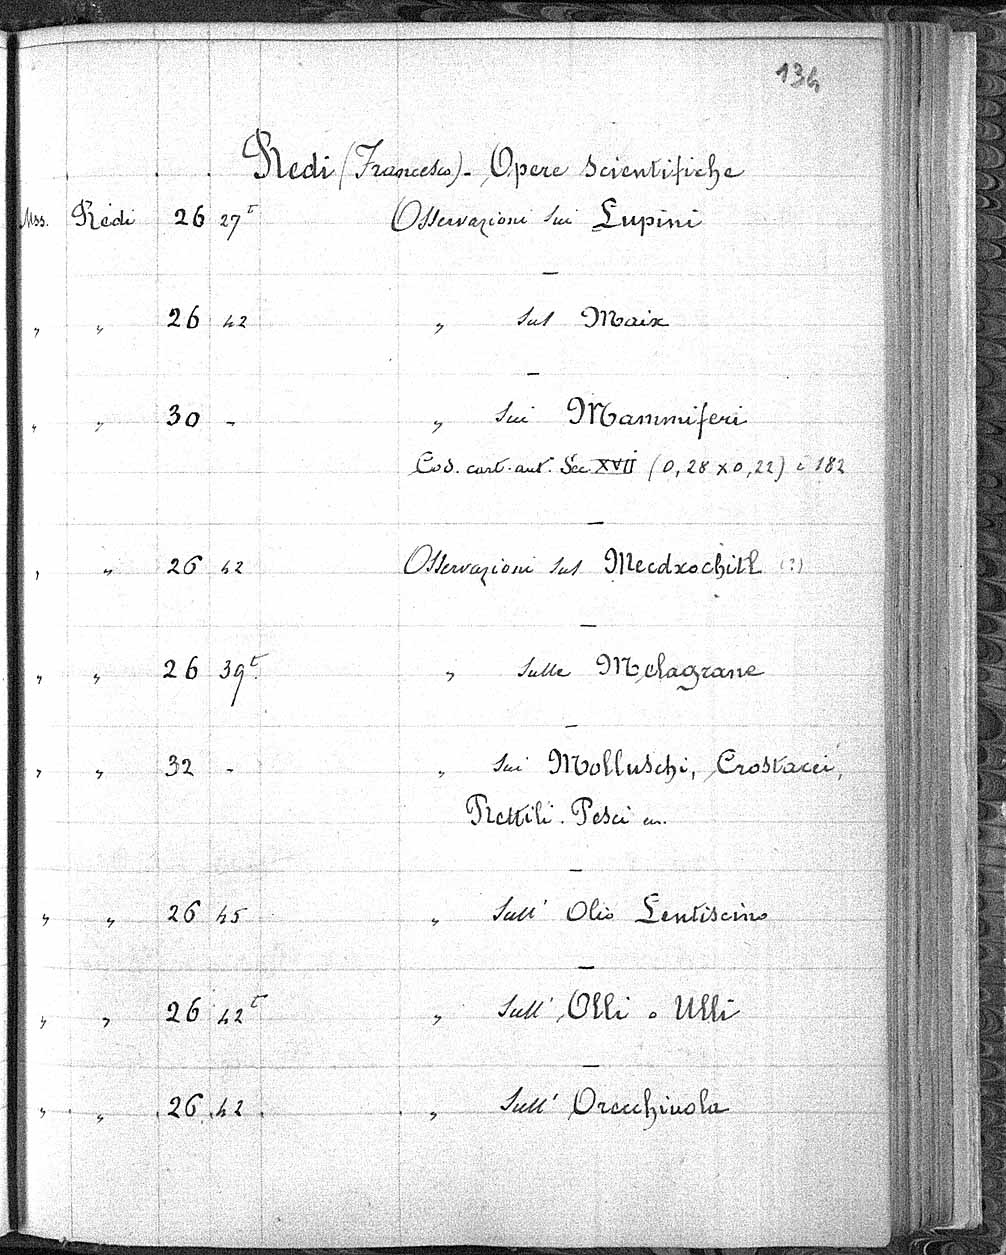 134
Redi (Francesco) - Opere scientifiche
Mss. Redi 26 27t Osservazioni sui Lupini
—
" " 26 42 " sul Maix
—
" " 30 - " sui Mammiferi
Cod. cart. aut. Sec. XVII (0,28 x 0,22) c 182
—
" " 26 42 Osservazioni sul Mecdxochitl (?)
—
" " 26 39t. " sulle Melagrane
—
" " 32 - " sui Molluschi, Crostacei,
Rettili. Pesci ec.
—
" " 26 45 " sull' Olio Lentiscino
—
" " 26 42t " sull' Olli o Ulli
—
" " 26 42 " sull' Orecchiuola